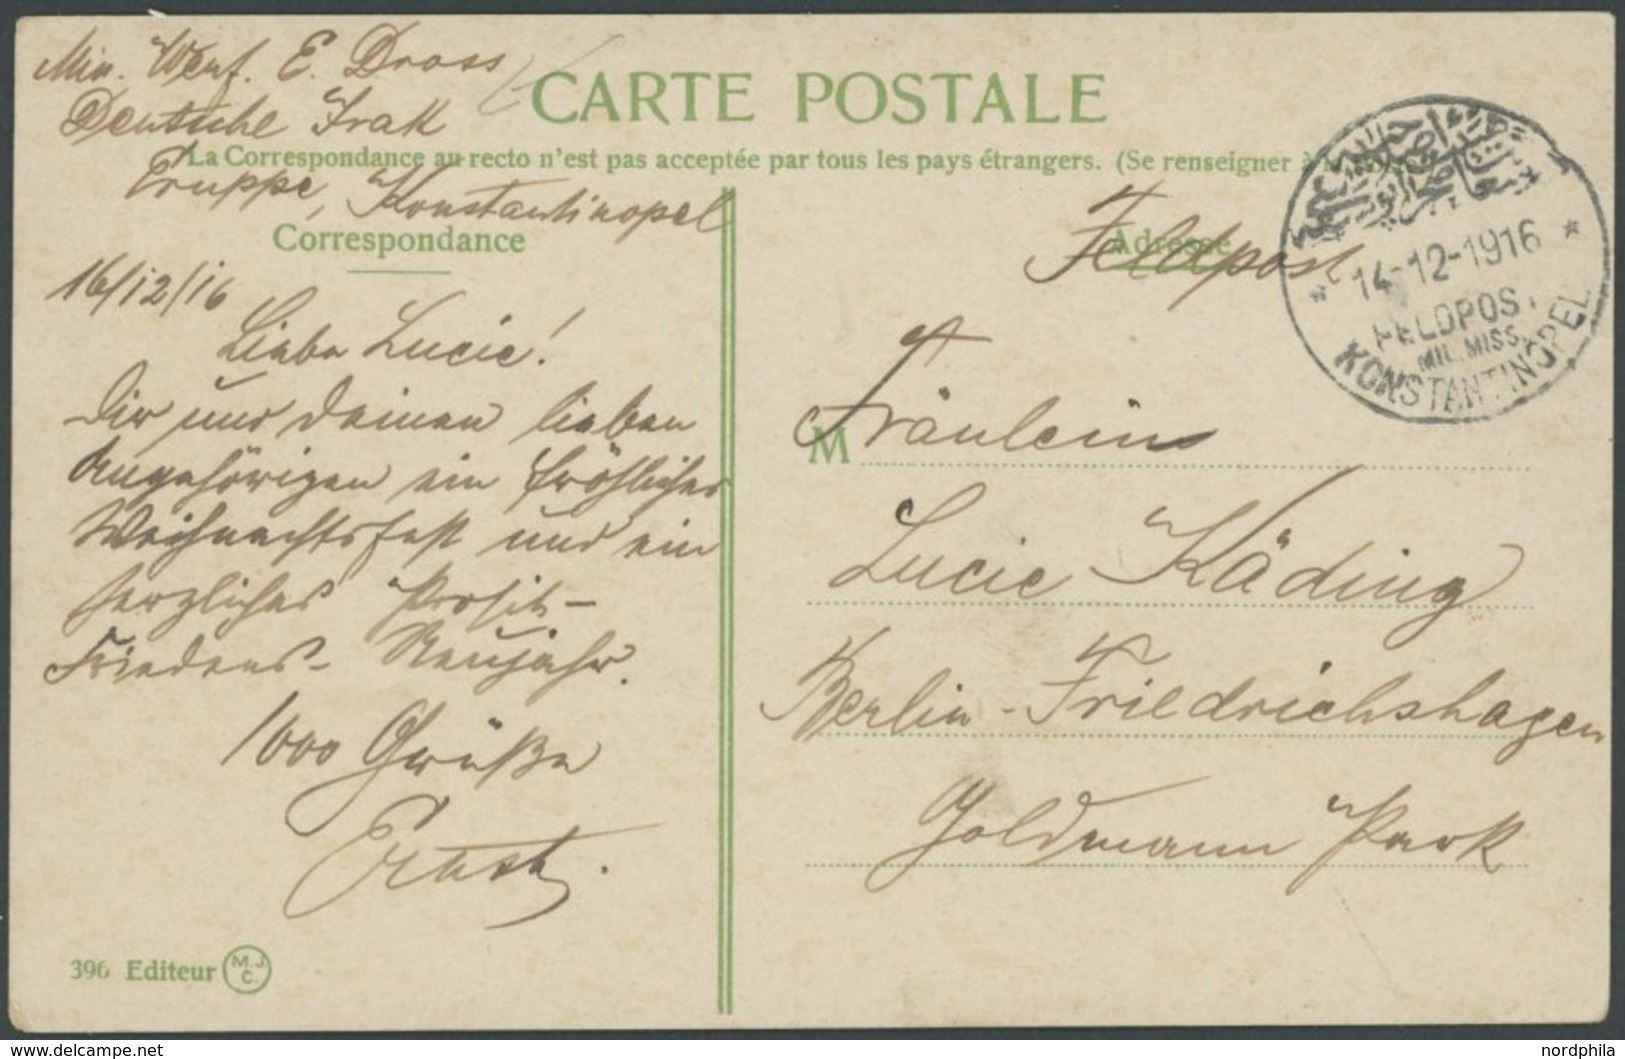 Min. Werf. E. Dross
Deutsche Irak
Truppe, Konstantinopel
CARTE POSTALE
La Correspondance au recto n'est pas acceptée par tous les pays étrangers. (Se renseigner à la
Correspondance
16/12/16
Liebe Lucie!
Dir und deinen lieben
Angehörigen ein fröhliches
Weihnachtsfest und ein
herzliches Prosit-
Friedens- Neujahr.
1000 Grüße
Ernst.
396 Editeur M.J.C.
Adresse
Feldpost
14-12-1916
FELDPOST
MIL. MISS.
KONSTANTINOPEL
M
Fräulein
Lucie Käding
Berlin-Friedrichshagen
Goldmann Park
www.delcampe.net
nordphila